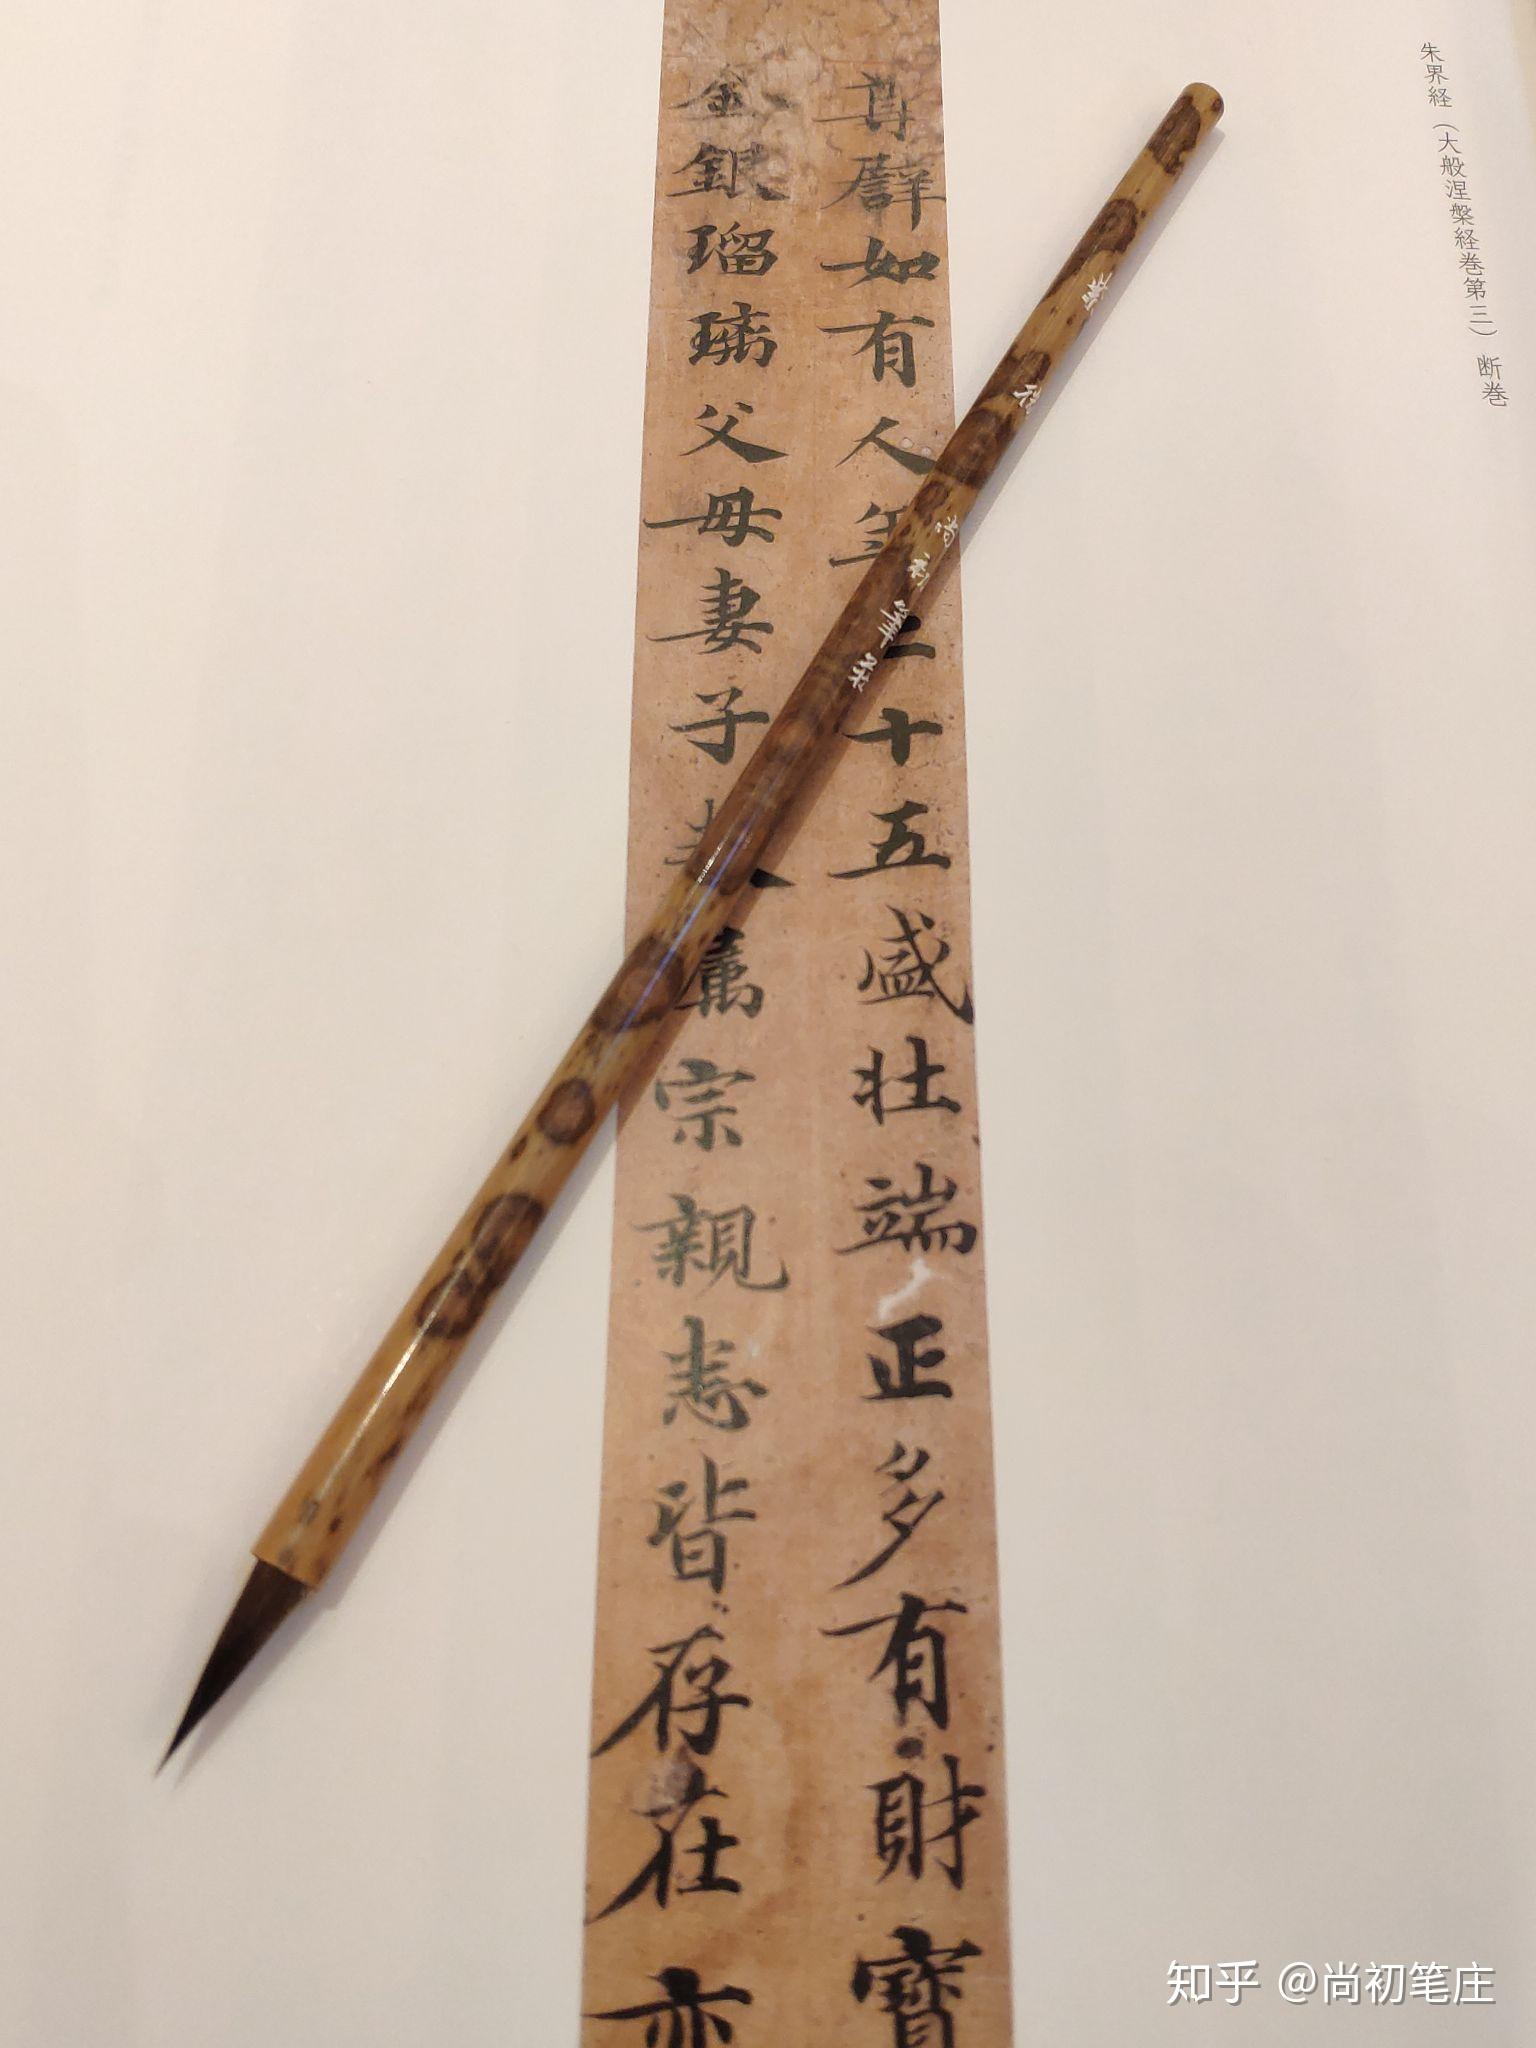 朱界経（大般涅槃経巻第三）断巻
尊譬如有人年二十五盛壮端正多有財寶
金銀瑠璃父母妻子眷属宗親悉皆存在亦
尚初筆莊
知乎 @尚初笔庄